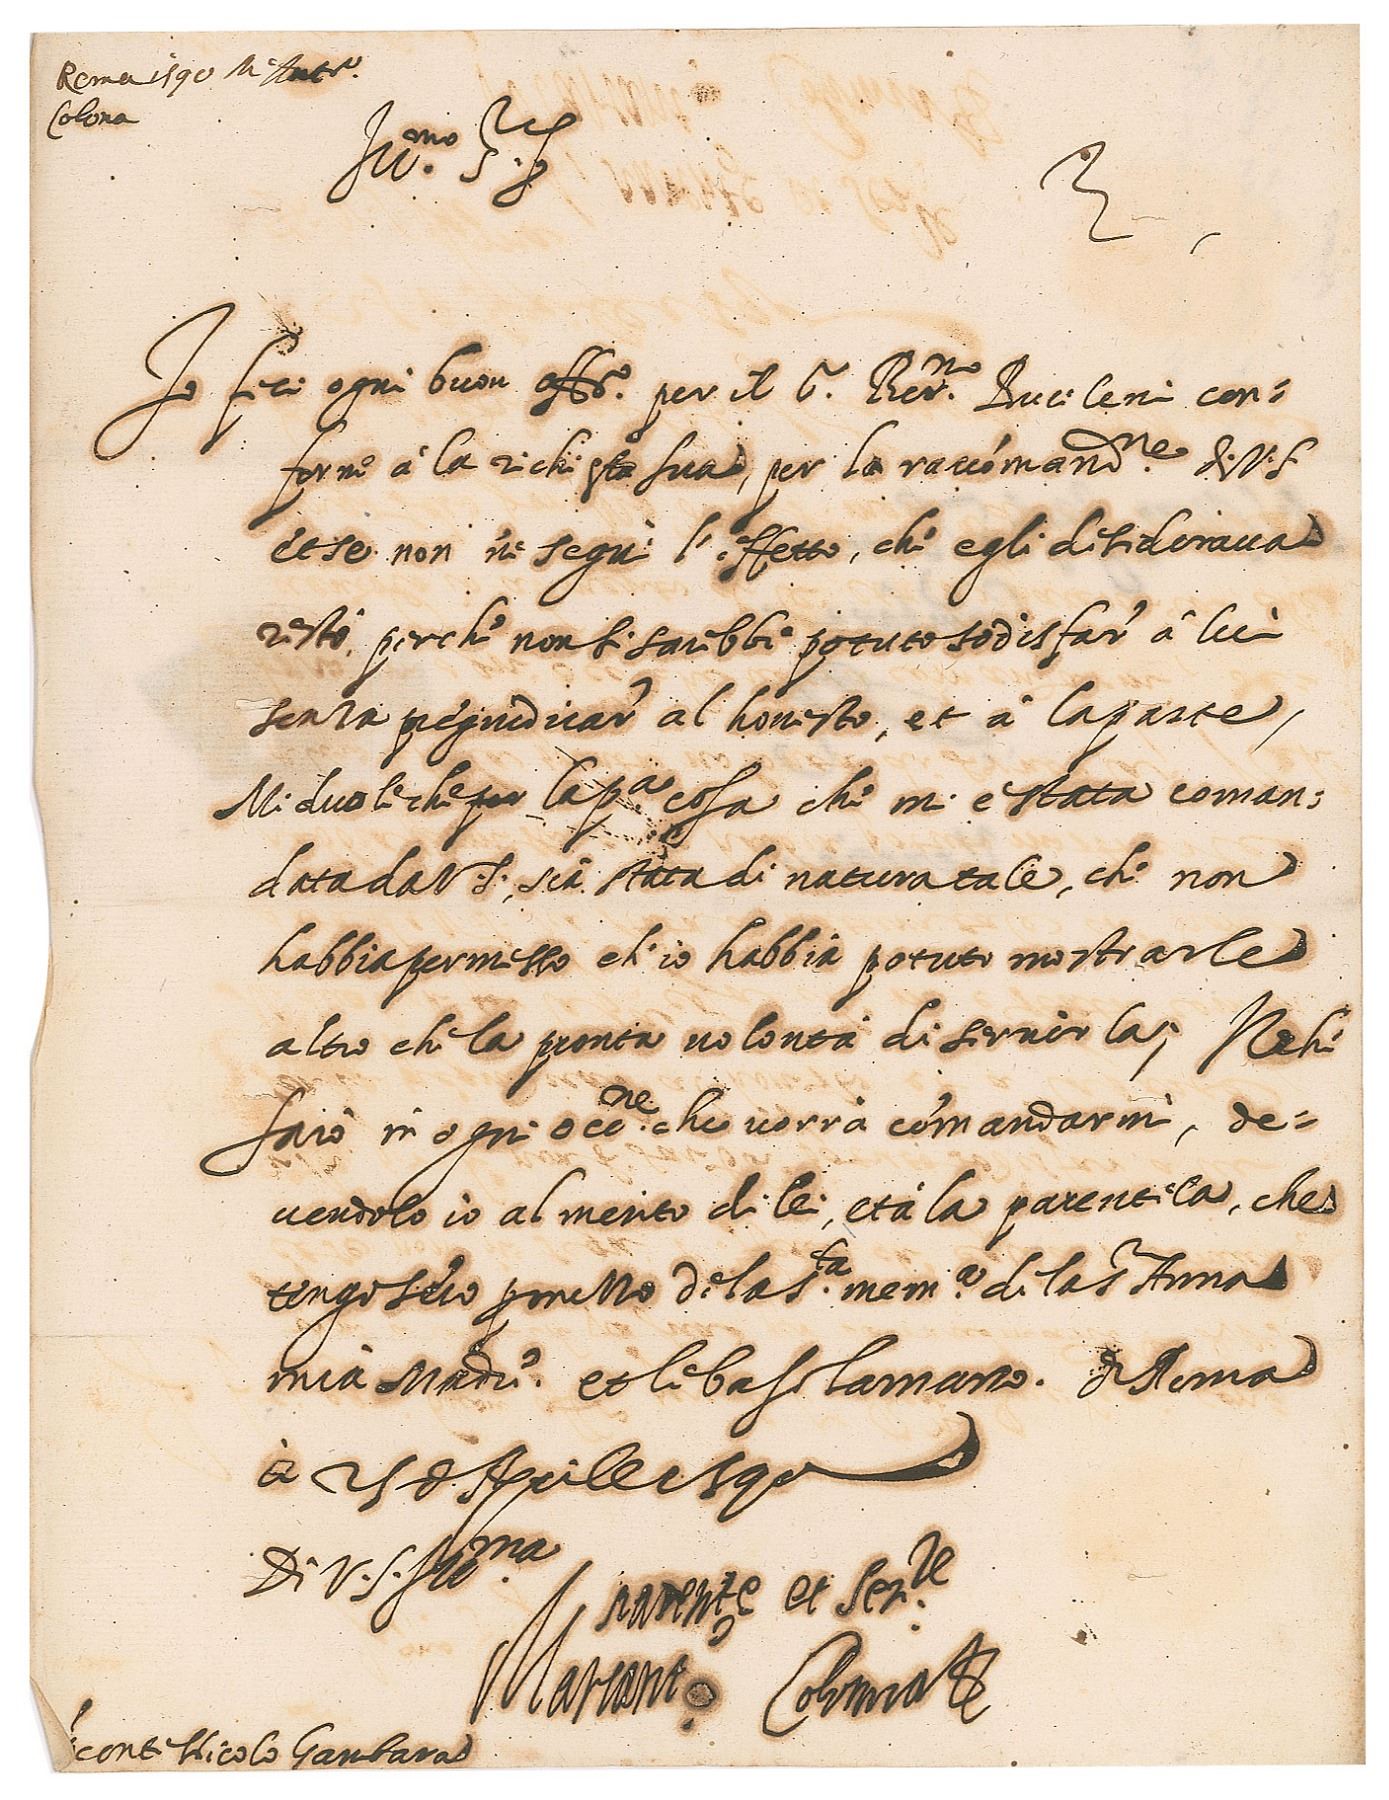 Roma 1590 M. Ant.o
Colona
Ill.mo S.r
Io feci ogni buon offo. per il S. Ber.no Buceleni con=
forme à la richiesta sua, per la raccomand.ne di V.S.
et se non ne seguì l'effetto, che egli desideraua
restò, perche non si sarebbe potuto sodisfar à lui
senza pregiudicar al honesto, et à la parte,
Mi duole che per la p.a cosa che mi è stata coman=
data da V.S. sia stata di natura tale, che non
habbia permesso ch'io habbia potuto mostrarle
altro che la pronta uolontà di seruirla; Il che
farò in ogni occ.ne che uorrà comandarmi, de=
uendolo io al merito di lei, et à la parentela, che
tengo seco per mezzo de la s.ta mem.a di la S.ra Anna
mia Madre. et le bascio la mano. di Roma
à 25 d'Aprile 1590
Di V.S. Ill.ma
Parente et Ser.re
Marcant.o Colonna
Conte Nicolo Gambara